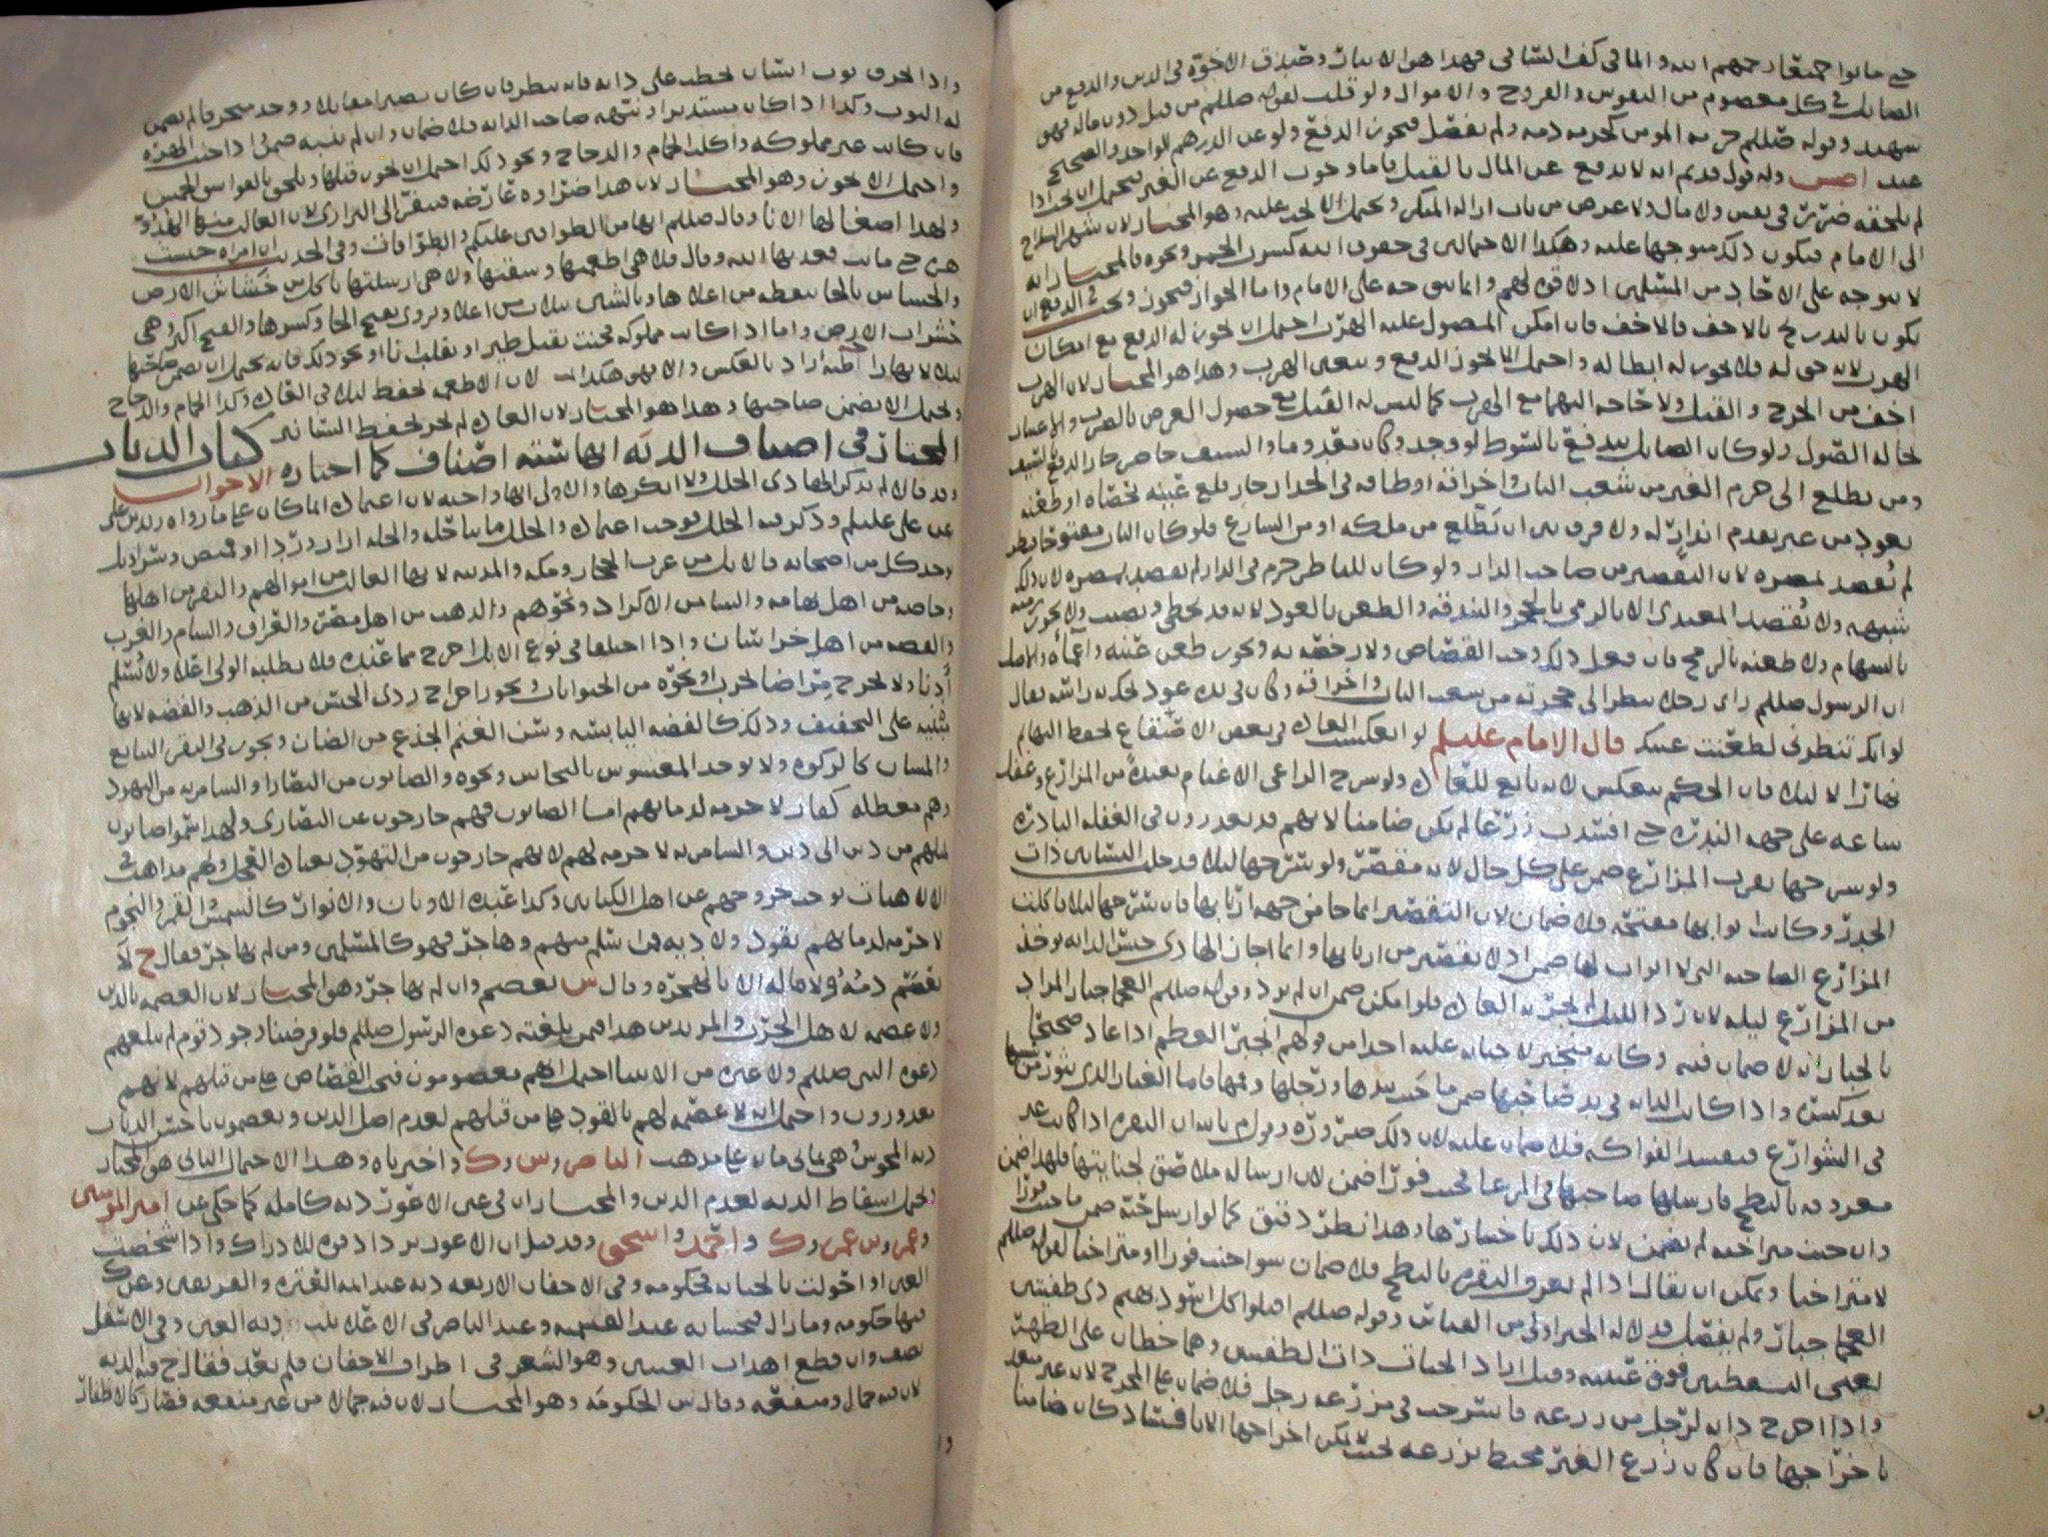 حتى ماتوا جميعا رحمهم الله والما في كف الساقي فهذا هو الايثار وصدق الاخوة في الدين والدفع من
الصايل في كل معصوم من النفوس والفروج والاموال ولو قلت لقوله صللم من قتل دون ماله فهو
شهيد وقوله صللم حرمة المومن كحرمة دمه ولم يفصل فيجوز الدفع ولو عن الدرهم الواحد والصحيح
لم يلحقه ضرر في نفس ولا مال ولا عرض من باب ازالة المنكر ويحتمل الا يجب عليه وهو المختار لان شهر السلاح
الى الامام فيكون ذلك متوجها عليه وهكذا الاحتمالين في حقوق الله ككسر الخمر ونحوه فالمختار انه
لا يتوجه على الاحاد من المسلمين اذ لا قوة لهم وانما يتوجه على الامام واما الجواز فيجوز ويجب في الدفع ان
يكون بالتدريج بالاخف فالاخف فان امكن المصول عليه الهرب احتمل ان يجوز له الدفع مع امكان
الهرب لانه حق له فلا يجوز له ابطاله واحتمل الا يجوز الدفع ويتعين الهرب وهذا هو المختار لان الهرب
اخف من الجرح والقتل ولا حاجة اليهما مع الهرب كما ليس له القتل مع حصول الغرض بالضرب
لحاله الصول ولو كان الصايل يندفع بالسوط لو وجد وكان بعيدا وما والسيف حاضر جاز الدفع بالسيف
ومن تطلع الى حرم الغير من شعب الباب واخراقه او طاقه في الجدار جاز قلع عينه بحصاه او طعنه
بعود من غير تقدم انذار له ولا فرق بين ان يطلع من ملكه او من الشارع فلو كان الباب مفتوحا فنظر
لم يقصد بصره لان التقصير من صاحب الدار ولو كان للناظر حرم في الدار لم يقصد بصره لان ذلك
شبهه ولا يقصد المعتدي الا بالرمي بالحجر والبندقه والطعن بالعود لانه قد يخطي ويصيب ولا يجوز رميه
بالسهام ولا طعنه بالرمح فان فعل ذلك وجب القصاص ولا رخصه به ويجوز طعن عينه واعماه والاصل
ان الرسول صللم راى رجلا ينظر الى حجرته من شعب الباب واخراقه وكان في يده عود يحك به راسه فقال
لو انك تنظرني لطعنت عينك قال الامام عليلم لو انعكست العادة في بعض الاصقاع لحفظ البهايم
نهارا لا ليلا فان الحكم ينعكس لانه تابع للعادة ولو سرح الراعي الاغنام بعيدة من المزارع وغفل
ساعه على جهه الندرة حتى افسدت زرعا لم يكن ضامنا لانهم قد يعذرون في الغفله النادرة
ولو سرحها بقرب المزارع ضمن على كل حال لانه مقصر ولو سرحها ليلا فدخلت البساتين ذات
الجدر وكانت ابوابها مفتحه فلا ضمان لان التقصير انما جا من جهه اربابها فان سرحها ليلا فاكلت
المزارع الضاحيه التي لا ابواب لها ضمن اذ لا تقصير من اربابها وانما اجاز الهادي حبس الدابه توخذ
من المزارع ليله لان رد الليل لم تجر به العادة فلو امكن ضمن ان لم يرد وقوله صللم العجما جبار المراد
بالجبار انه لا ضمان فيه وكانه
بعد كسره واذا كانت الدابه في يد صاحبها ضمن ما جنت بيدها ورجلها وفمها فاما الغبار الذي يثور من مشيها
في الشوارع فيفسد الفواكه فلا ضمان عليه لان ذلك ضروره
معروفه بالنطح فارسلها صاحبها في المرعا فجنت فورا ضمن لان ارساله ملاصق لجنايتها فلهذا ضمن
وان جنت متراخيه لم يضمن لان ذلك باختيارها وهذا نظر دقيق كما لو ارسل حيه ضمن ما جنت فورا
لا متراخيا ويمكن ان يقال اذا لم يعرف البقره بالنطح فلا ضمان سوا جنت فورا او متراخيا لقوله صللم
العجما جبار ولم يفصل فدلاله الخبر اولى من القياس وقوله صللم اقتلوا كل اسود بهيم ذي طفيتين
يعني النقطتين فوق عينيه وقيل اراد الحيات ذات الطفيتين وهما خطان على الظهر
واذا اخرج دابه لرجل من زرعه فانسرحت في مزرعه رجل فلا ضمان على المخرج لانه غير متعد
باخراجها فان كان زرع الغير محيط بزرعه بحيث لا يمكن اخراجها الا بافساد كان ضامنا
واذا خرق ثوب انسان بحطب على دابه فانه ينظر فان كان بصيرا مقابلا ووجد منحرفا لم يضمن
له الثوب وكذا اذا كان مستدبرا ونبهه صاحب الدابه فلا ضمان وان لم ينبه ضمن واذا جنت الهره
فان كانت غير مملوكه واكلت الحمام والدجاج ونحو ذلك احتمل ان يجوز قتلها ويلحق بالفواسق الخمس
واحتمل الا يجوز وهو المختار لان هذا ضراوه عارضه
ولهذا اصغا لها الانا وقال صللم انها من الطوافين عليكم والطوافات وفي الحديث ان امراه حبست
هره حتى ماتت فعذبها الله وقال فلا هي اطعمتها وسقتها ولا هي ارسلتها تاكل من خشاش الارض
حشرات الارض واما اذا كانت مملوكه فجنت بقتل طير او بقلب انا او نحو ذلك فانه يحتمل ان يضمن صاحبها
ليلا لا نهارا اظنه اراد بالعكس والا فهو هكذا لان الاطعمه تحفظ ليلا في العادة وكذا الحمام والدجاج
ويحتمل الا يضمن صاحبها وهذا هو المختار لان العادة لم تجر بحفظ السنانير كتاب الديات
المختار في اصناف الديه انها سته اصناف كما اختاره الاخوان
وقد قالا لم يذكر الهادي الحلل ولا انكرها والاولى انها واجبه لان اعتمادنا انما كان على ما رواه زيد بن علي
عن علي عليلم وذكر فيه الحلل فوجب اعتماده والحلل ما يتاحله والحله ازار وردا او قميص وسراويل
وتوخذ كل من اصحابه فالابل من عرب الحجاز ومكه والمدينه لانها الغالب من اموالهم والبقر من اهلها
وخاصه من اهل تهامه والشا من الاكراد ونحوهم والذهب من اهل مصر والعراق والشام والغرب
والفضه من اهل خراسان واذا اختلفا في نوع الابل اخرج مما عنده فلا يطلبه الولي اعلا ولا يسلم
ادنا ولا يخرج مراضا لجرب او نحوه من الحيوانات ويجوز اخراج ردي الجنس من الذهب والفضه لانها
مبنيه على التخفيف وذلك كالفضه اليابسه وسن الغنم الجذع من الضان ويجوز في البقر التبايع
والمسان كالزكوه ولا يوخذ المغشوش بالنحاس ونحوه والصابون من النصارا والسامريه من اليهود
وهم معطله كفار لا حرمه لدمايهم اما الصابون فهم خارجون عن النصارى ولهذا سموا صابون
لميلهم من دين الى دين والسامريه لا حرمه لهم لانهم خارجون من التهود بعبادة العجل ولهم مذاهب في
الالاهيات توجب خروجهم عن اهل الكتابين وكذا عبدة الاوثان والانوار كالشمس والقمر والنجوم
لا حرمه لدمايهم بقود ولا ديه فمن اسلم منهم وهاجر فهو كالمسلمين ومن لم يهاجر فقال ح لا
يعصم دمه ولا ماله الا بالهجره وقال س يعصم وان لم يهاجر وهو المختار لان العصمه بالدين
ولا عصمه لاهل الحرب والمرتدين هذا فيمن بلغته دعوه الرسول صللم فلو فرضنا وجود قوم لم تبلغهم
دعوه النبي صللم ولا غيره من الانبيا احتمل انهم معصومون فيجب القصاص على من قتلهم لانهم
معذورون واحتمل انه لا عصمه لهم بالقود على من قتلهم لعدم اصل الدين ويعصمون باخس الديات
ديه المجوس هي ثماني مايه على مذهب الناصر و س و ك واختاره وهذا الاحتمال الثاني هو المختار
ويحتمل اسقاط الديه لعدم الدين والمختار ان في عين الاعور ديه كامله كما حكي عن امير المومنين
وعمر وبن عمر و ك واحمد واسحق وقد قيل ان الاعور يزداد قوه للادراك واذا شخصت
العين او احولت بالجنايه فحكومه وفي الاجفان الاربعه ديه عند ايمه العتره والفريقين وعن ك
فيها حكومه وما زال فبحسابه عند القسميه وعند الناصر في الاعلا ثلث ديه العين وفي الاسفل
نصف وان قطع اهداب العينين وهو الشعر في اطراف الاجفان فلم يعد فقال ح فيه الديه
لان فيه جمال ومنفعه وقال س الحكومه وهو المختار لان فيه جمالا من غير منفعه فصار كالاظفار